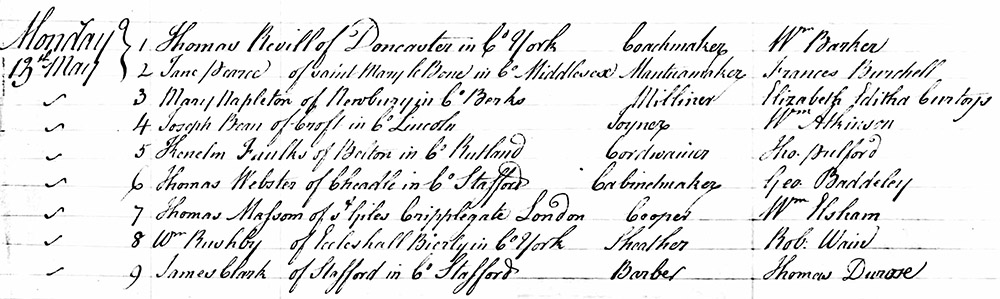 Monday } 1 Thomas Revill of Doncaster in Co. York Coachmaker Wm Barker
13th May 2 Jane Pearce of Saint Mary le Bone in Co. Middlesex Mantuamaker Frances Burchell
" 3 Mary Napleton of Newbury in Co. Berks Milliner Elizabeth Editha Curtoys
" 4 Joseph Beau of Croft in Co. Lincoln Joyner Wm Atkinson
" 5 Kenelm Faulks of Belton in Co. Rutland Cordwainer Tho. Pulford
" 6 Thomas Webster of Cheadle in Co. Stafford Cabinetmaker Geo. Baddeley
" 7 Thomas Massom of St Giles Cripplegate London Cooper Wm Elsham
" 8 Wm Rushby of Eccleshall Bierly in Co. York Sheather Rob. Wain
" 9 James Clark of Stafford in Co. Stafford Barber Thomas Durose